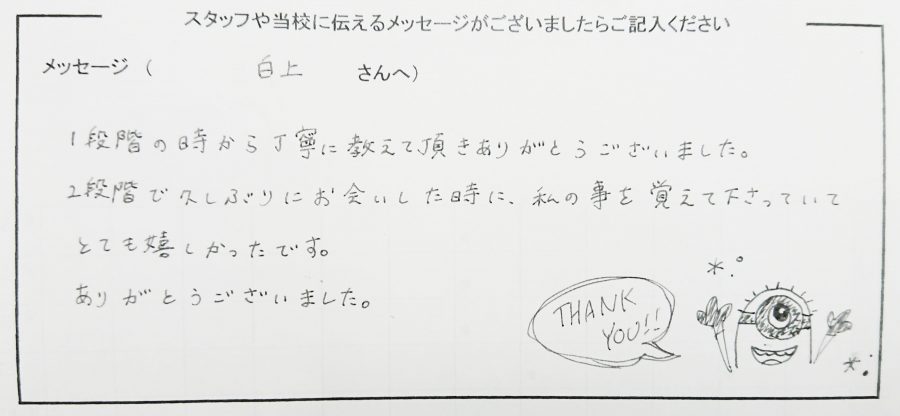 スタッフや当校に伝えるメッセージがございましたらご記入ください
メッセージ ( 白上 さんへ)
1段階の時から丁寧に教えて頂きありがとうございました。
2段階で久しぶりにお会いした時に、私の事を覚えて下さっていて
とても嬉しかったです。
ありがとうございました。
THANK
YOU!!